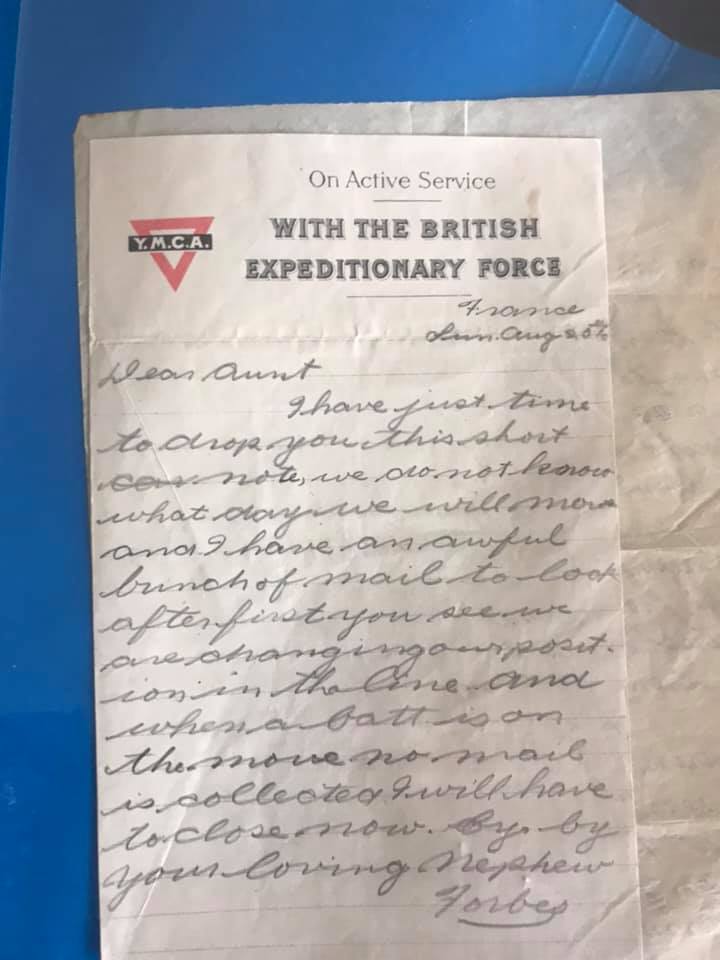 On Active Service
Y.M.C.A.
WITH THE BRITISH
EXPEDITIONARY FORCE
France
Sun. Aug 20th
Dear Aunt
I have just time
to drop you this short
note, we do not know
what day we will move
and I have an awful
bunch of mail to look
after first you see we
are changing our posit-
ion in the line and
when a batt is on
the move no mail
is collected I will have
to close now. By. by
your loving Nephew
Forbes